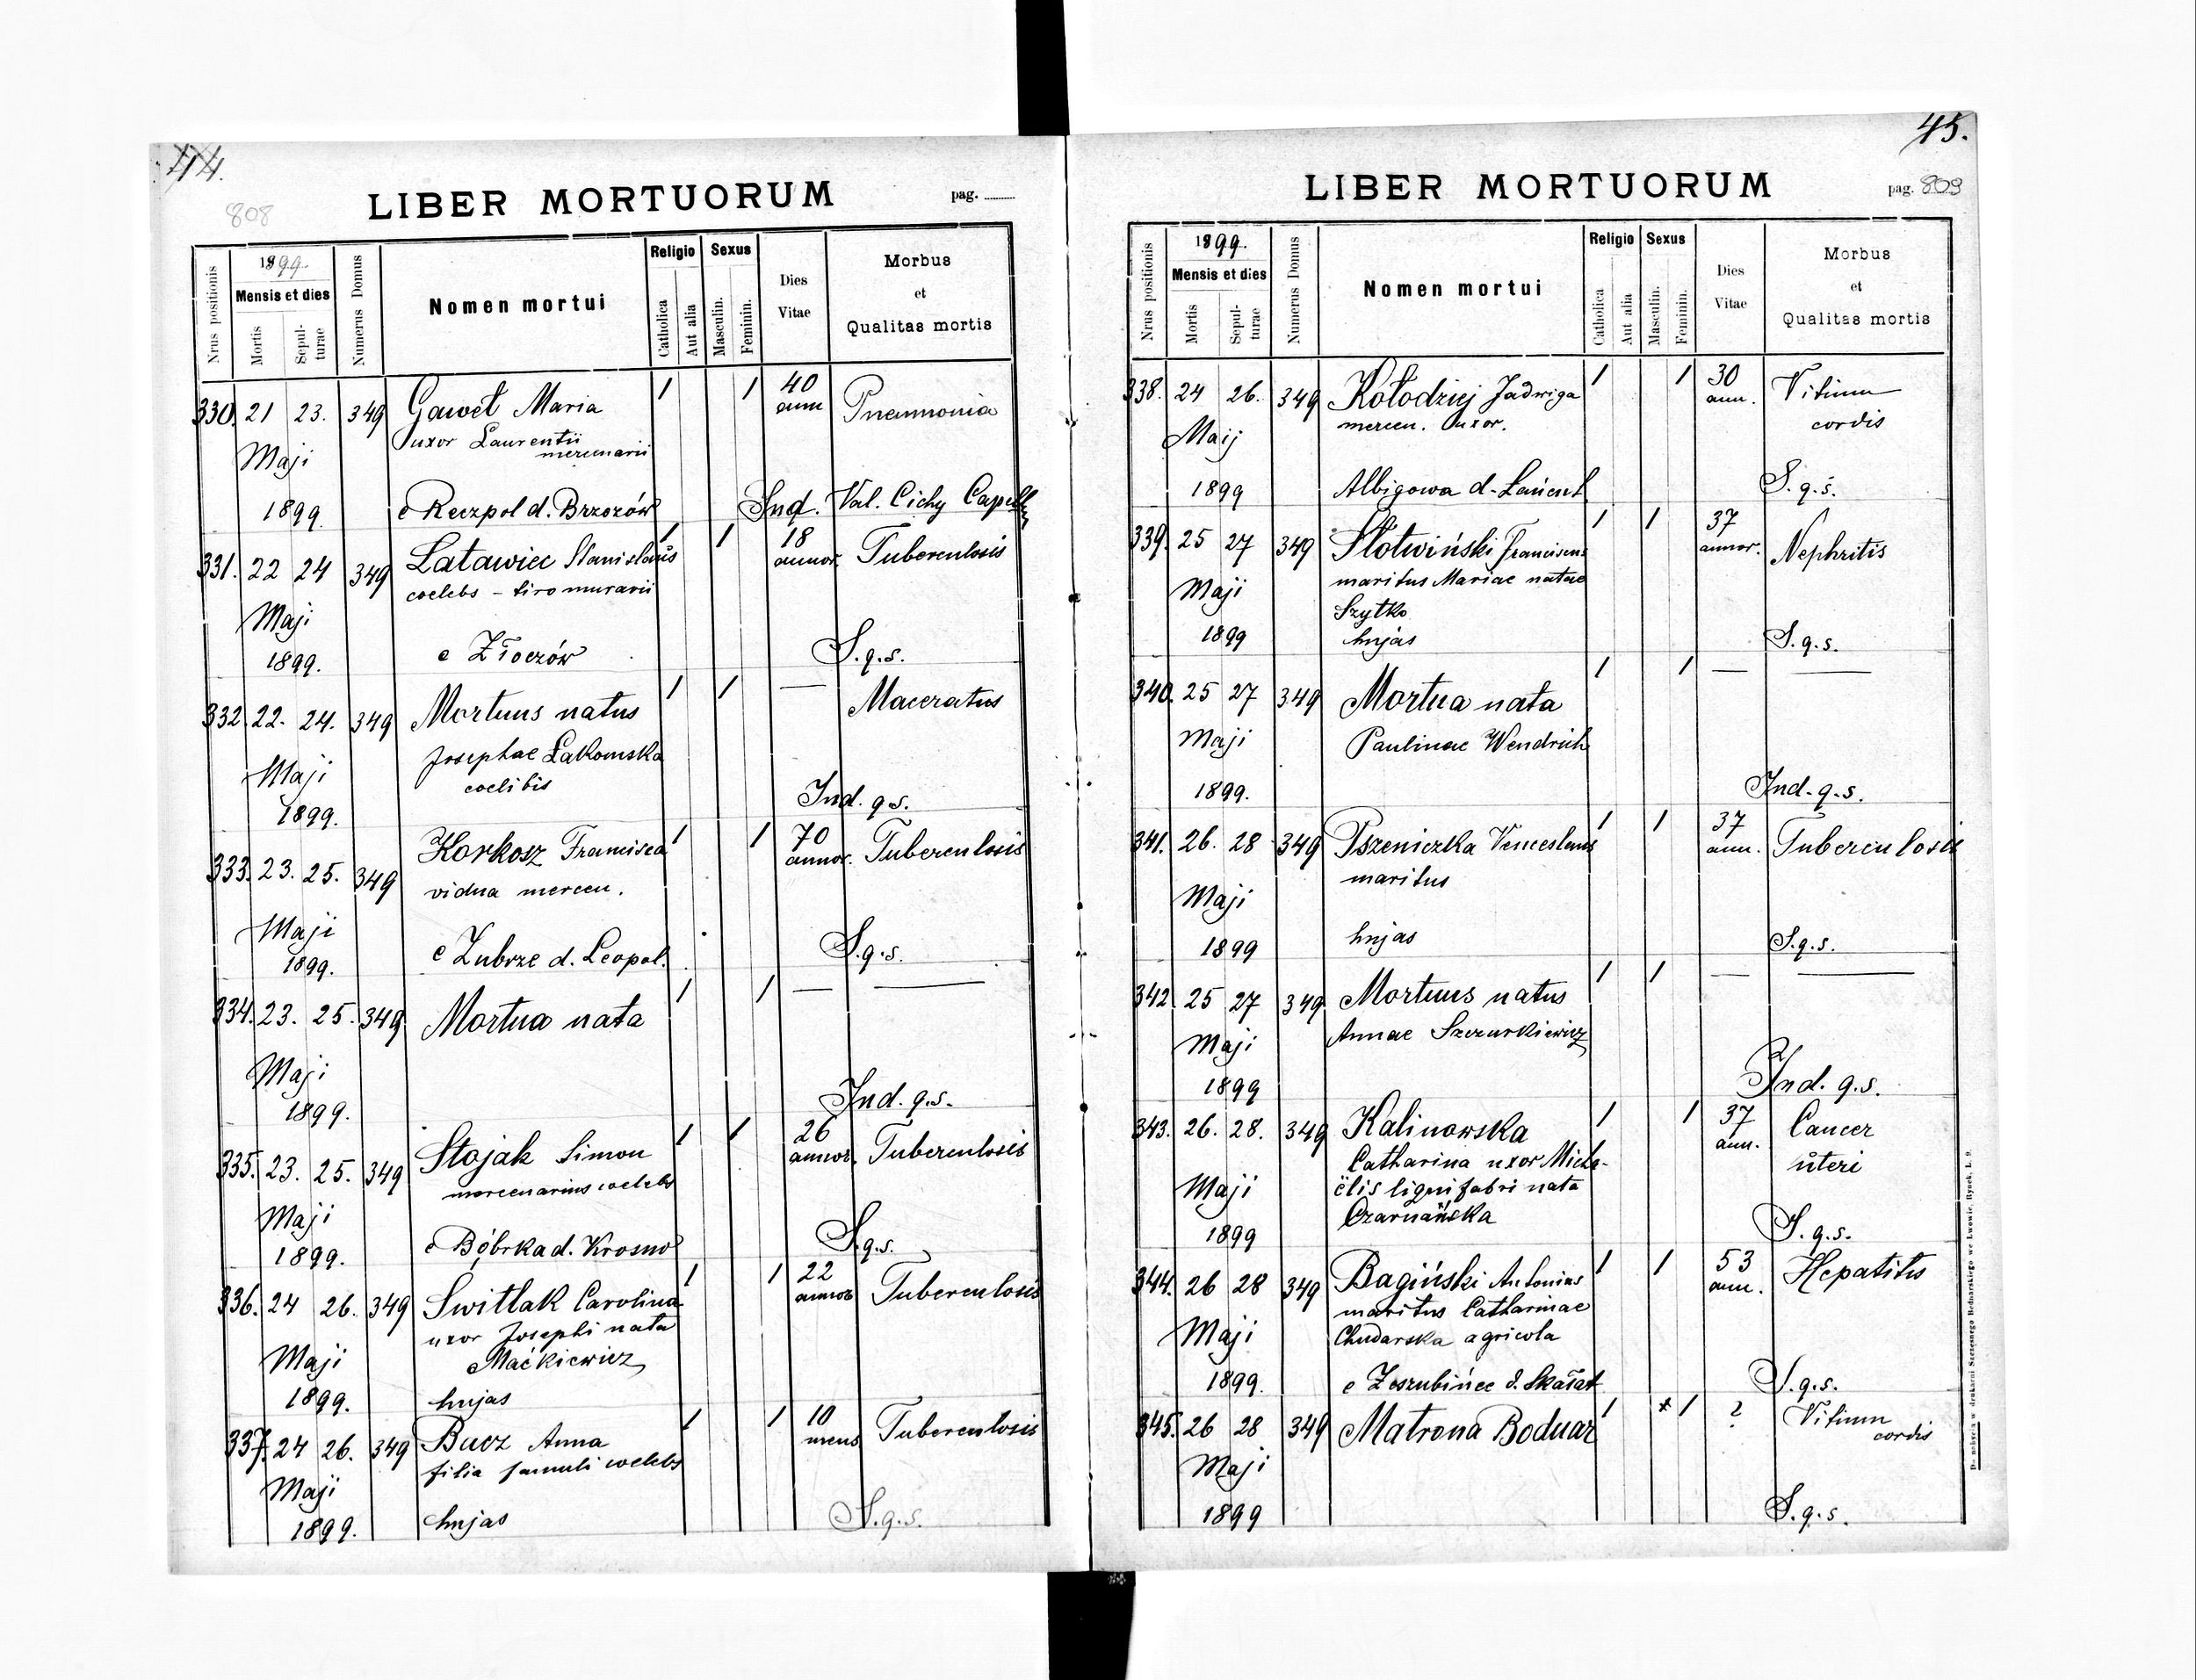 44.
808
LIBER MORTUORUM
pag.
Nrus positionis
1899.
Mensis et dies
Mortis
Sepul-
turae
Numerus Domus
Nomen mortui
Religio
Catholica
Aut alia
Sexus
Masculin.
Feminin.
Dies
Vitae
Morbus
et
Qualitas mortis
330. 21 23. 349 Gaweł Maria 1 1 40 Pneumonia
uxor Laurentii ann
mercenarii
Maji
1899 e Reczpol d. Brzozów Ind. Val. Cichy Capell
331. 22 24 349 Latawiec Stanislaus 1 1 18 Tuberculosis
coelebs - tiro murarii annor.
Maji
1899. e Złoczów S.q.s.
332. 22. 24. 349 Mortuus natus 1 1 — Maceratus
Josephae Łakomska
Maji coelibis
1899. Ind. q.s.
333. 23. 25. 349 Korkosz Francisca 1 1 70 Tuberculosis
vidua mercen. annor.
Maji
1899. e Zubrze d. Leopol. S.q.s.
334. 23. 25. 349 Mortua nata 1 1 — —
Maji
1899. Ind. q.s.
335. 23. 25. 349 Stojak Simon 1 1 26 Tuberculosis
mercenarius coelebs annor.
Maji
1899. e Bóbrka d. Krosno S.q.s.
336. 24 26. 349 Switlak Carolina 1 1 22 Tuberculosis
uxor Josephi nata annor
Maji Maćkiewicz
1899. hujas
337. 24 26. 349 Bucz Anna 1 1 10 Tuberculosis
filia famuli coelebs mens
Maji
1899. hujas S.q.s.
45.
LIBER MORTUORUM
pag. 809
Nrus positionis
1899.
Mensis et dies
Mortis
Sepul-
turae
Numerus Domus
Nomen mortui
Religio
Catholica
Aut alia
Sexus
Masculin.
Feminin.
Dies
Vitae
Morbus
et
Qualitas mortis
338. 24 26. 349 Kołodziej Jadwiga 1 1 30 Vitium
mercen. uxor. ann. cordis
Maij
1899 Albigowa d. Łańcut S.q.s.
339. 25 27 349 Słotwiński Franciscus 1 1 37 Nephritis
maritus Mariae natae annor.
Maji Szytko
1899 hujas S.q.s.
340. 25 27 349 Mortua nata 1 1 — —
Maji Paulinae Wendrich
1899. Ind. q.s.
341. 26. 28 349 Pszeniczka Venceslaus 1 1 37 Tuberculosis
maritus ann.
Maji
1899 hujas S.q.s.
342. 25 27 349 Mortuus natus 1 1 — —
Annae Szczurkiewicz
Maji
1899 Ind. q.s.
343. 26. 28. 349 Kalinowska 1 1 37 Cancer
Catharina uxor Micha- ann. uteri
Maji ëlis lignifabri nata
1899 Czarnańska S.q.s.
344. 26 28 349 Bagiński Antonius 1 1 53 Hepatitis
maritus Catharinae ann.
Maji Chudarska agricola
1899. e Zoszubińce d. Skałat S.q.s.
345. 26 28 349 Matrona Boduar 1 x 1 ? Vitium
Maji cordis
1899 S.q.s.
Do nabycia w drukarni Szczęsnego Bednarskiego we Lwowie, Rynek, L. 9.